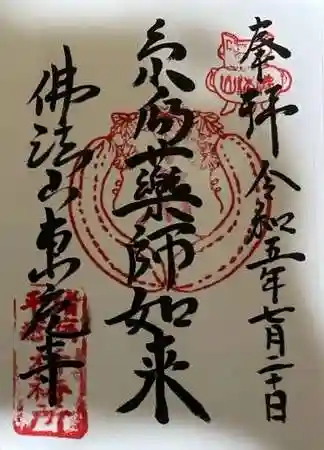 奉拝 令和五年七月二十日
糸瓜藥師如来
佛法山東充寺